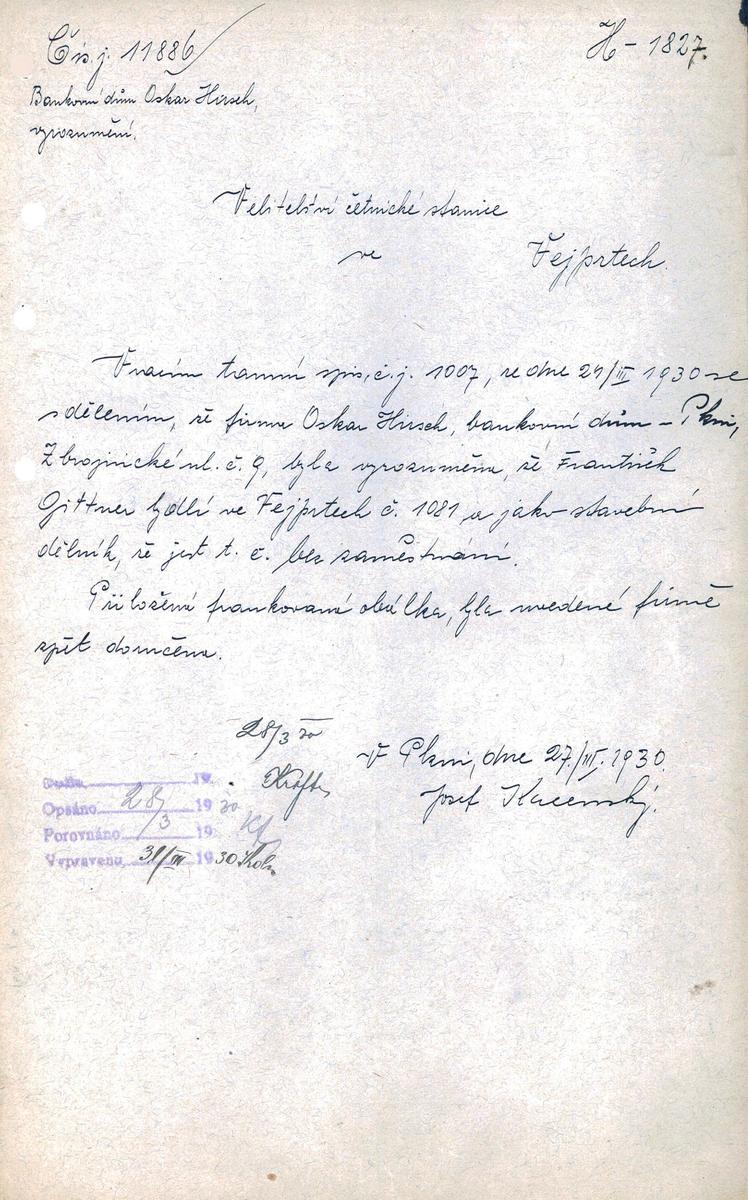 Čís. j. 11886
H - 1827.
Bankovní dům Oskar Hirsch,
vyrozumění.
Velitelství četnické stanice
ve Vejprtech.
Vracím tamní spis, č. j. 1007, ze dne 24/III 1930 se
sdělením, že firma Oskar Hirsch, bankovní dům - Plzni,
Zbrojnické ul. č. 9, byla vyrozuměna, že František
Gittner bydlí ve Vejprtech č. 1081 a jako stavební
dělník, že jest t. č. bez zaměstnání.
Přiložená frankovaná obálka, byla uvedené firmě
zpět doručena.
28/3 30
V Plzni, dne 27./III. 1930.
Josef
Došlo 19
Opsáno 28/3 1930
Porovnáno 19
Vypraveno 31/III 1930